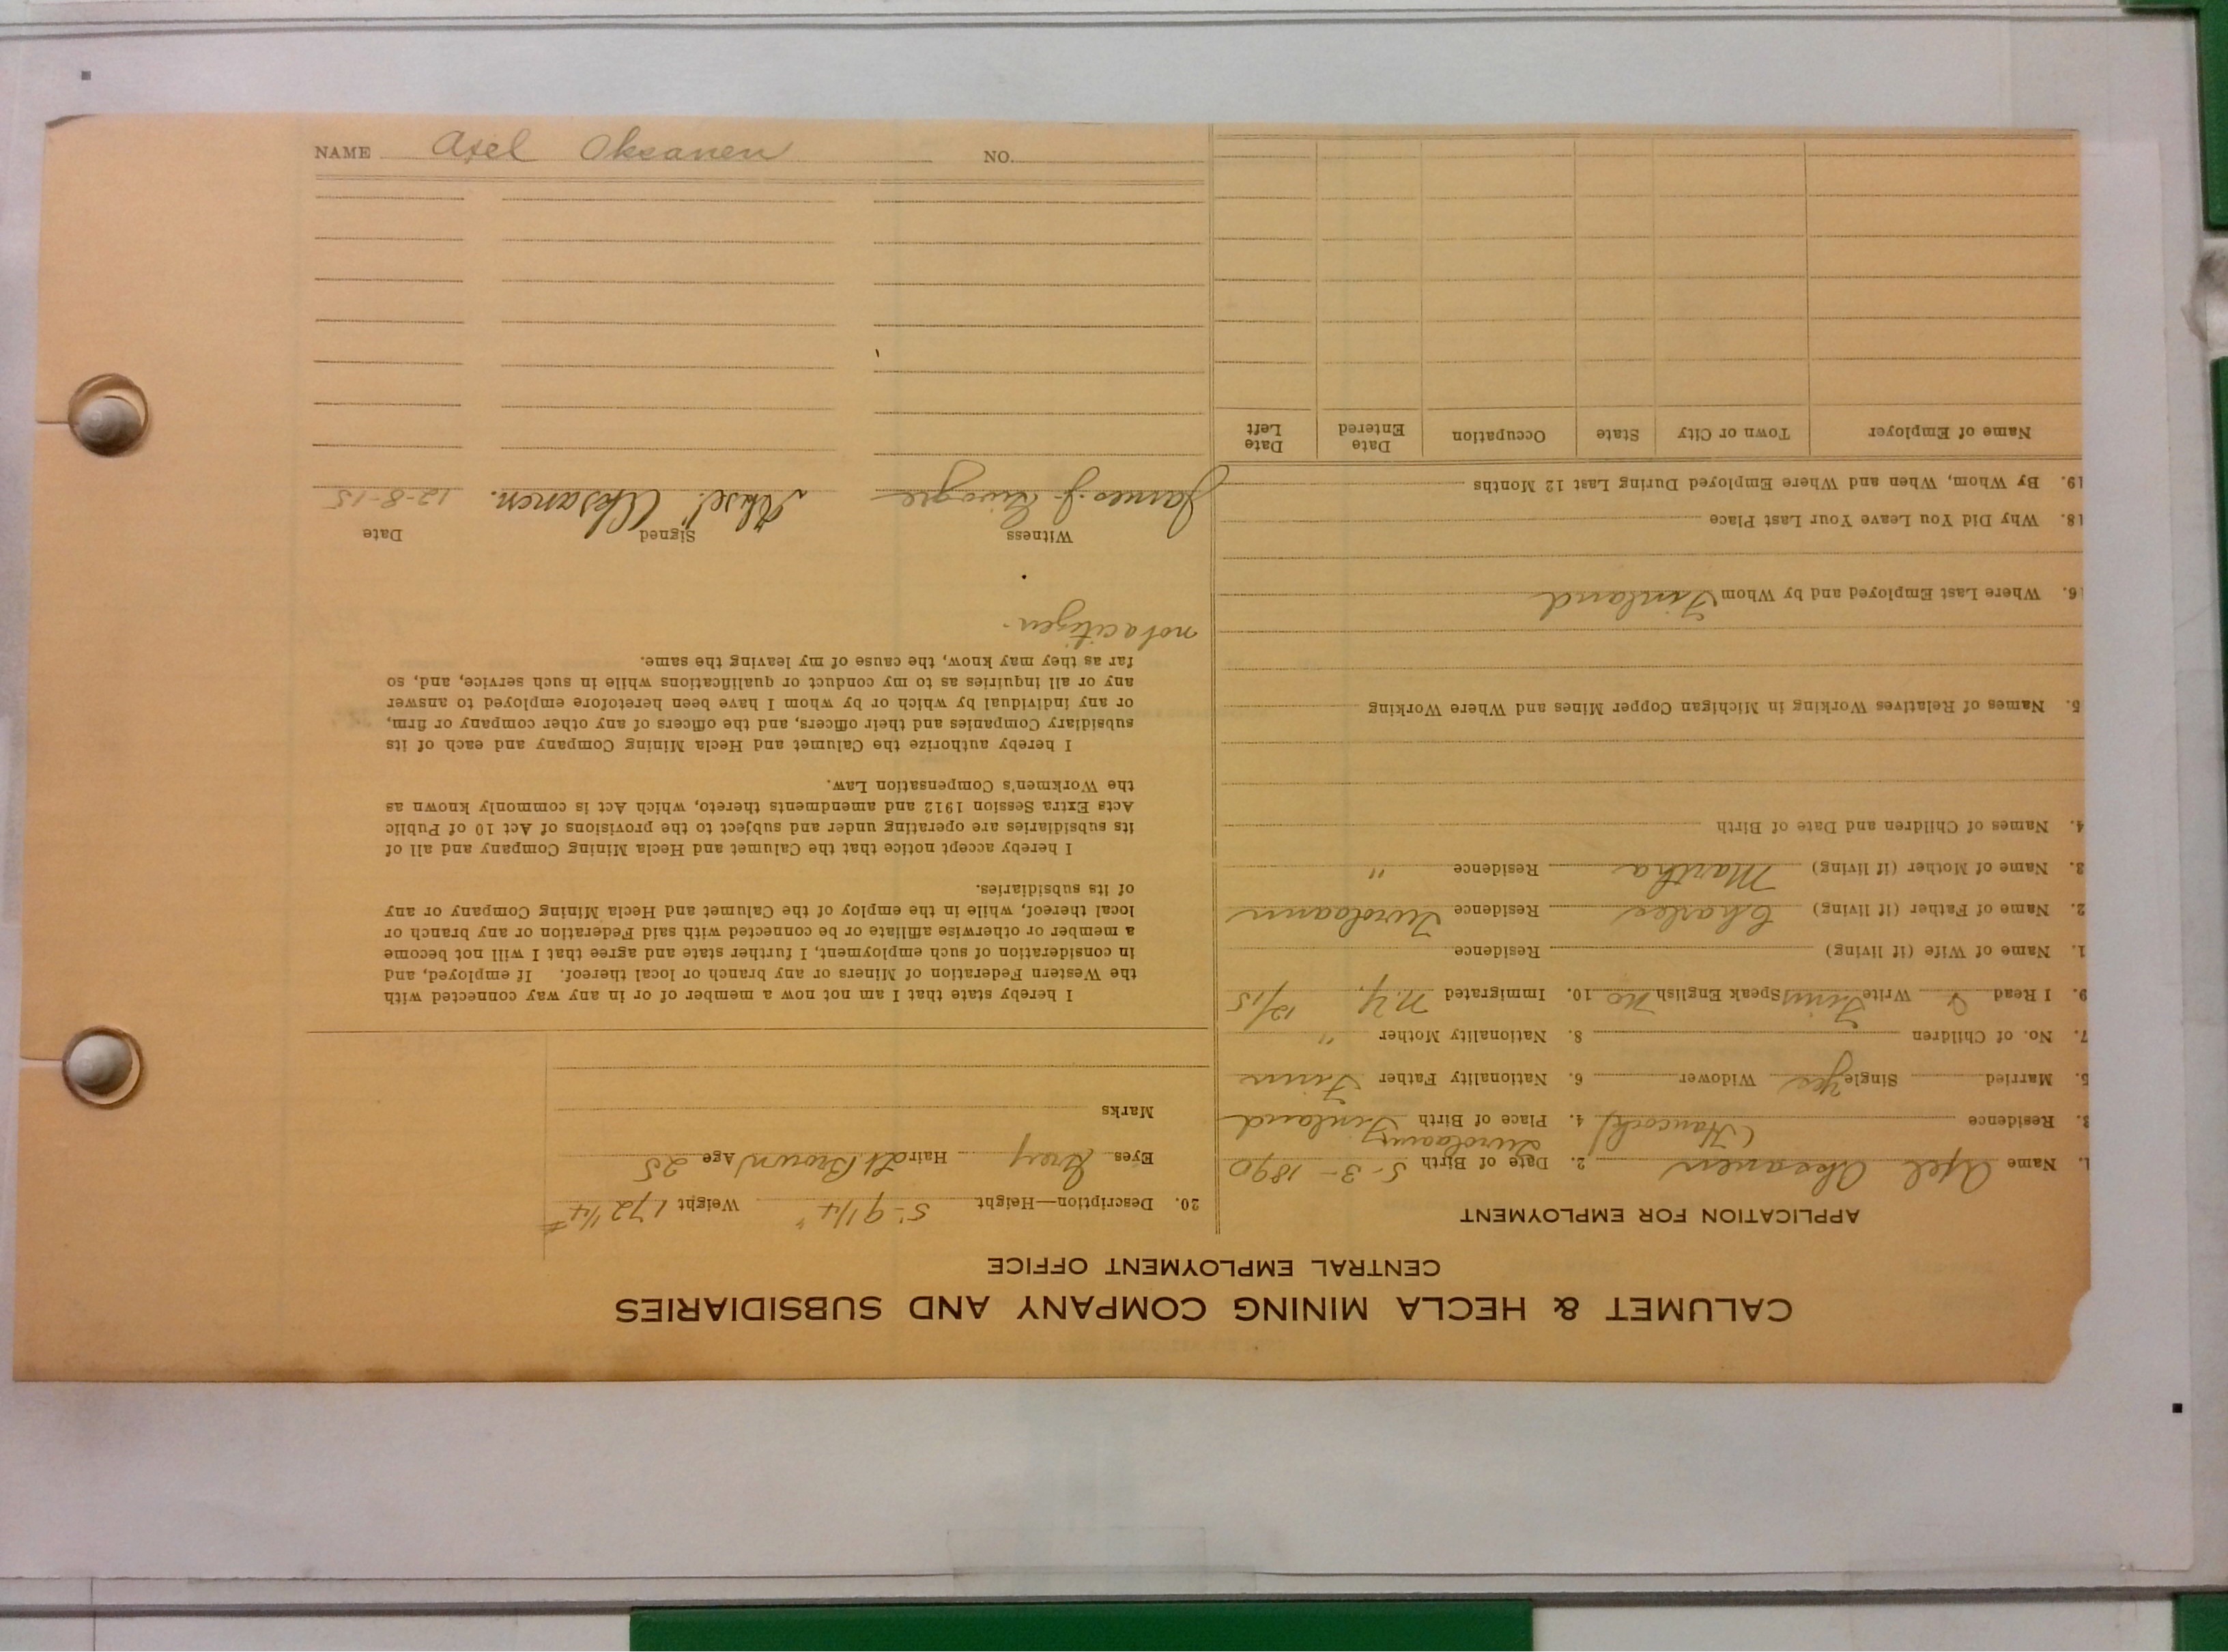 CALUMET & HECLA MINING COMPANY AND SUBSIDIARIES
CENTRAL EMPLOYMENT OFFICE
APPLICATION FOR EMPLOYMENT
1. Name Axel Oksanen 2. Date of Birth 5-3-1890
3. Residence (Hancock) 4. Place of Birth Finland
5. Married Single Yes Widower 6. Nationality Father Finn
7. No. of Children 8. Nationality Mother "
9. I Read & Write Finn Speak English No 10. Immigrated N.Y. 12/15
1. Name of Wife (if living) Residence
2. Name of Father (if living) Charles Residence
3. Name of Mother (if living) Martha Residence "
4. Names of Children and Date of Birth
5. Names of Relatives Working in Michigan Copper Mines and Where Working
6. Where Last Employed and by Whom Finland
18. Why Did You Leave Your Last Place
19. By Whom, When and Where Employed During Last 12 Months
Name of Employer Town or City State Occupation Date Entered Date Left
20. Description—Height 5'-9 1/4" Weight 172 1/4 #
Eyes Grey Hair Lt. Brown Age 25
Marks
I hereby state that I am not now a member of or in any way connected with
the Western Federation of Miners or any branch or local thereof. If employed, and
in consideration of such employment, I further state and agree that I will not become
a member or otherwise affiliate or be connected with said Federation or any branch or
local thereof, while in the employ of the Calumet and Hecla Mining Company or any
of its subsidiaries.
I hereby accept notice that the Calumet and Hecla Mining Company and all of
its subsidiaries are operating under and subject to the provisions of Act 10 of Public
Acts Extra Session 1912 and amendments thereto, which Act is commonly known as
the Workmen's Compensation Law.
I hereby authorize the Calumet and Hecla Mining Company and each of its
subsidiary Companies and their officers, and the officers of any other company or firm,
or any individual by which or by whom I have been heretofore employed to answer
any or all inquiries as to my conduct or qualifications while in such service, and, so
far as they may know, the cause of my leaving the same.
not a citizen.
Witness Signed Date
James J. Oksanen. 12-8-15
NAME Axel Oksanen NO.